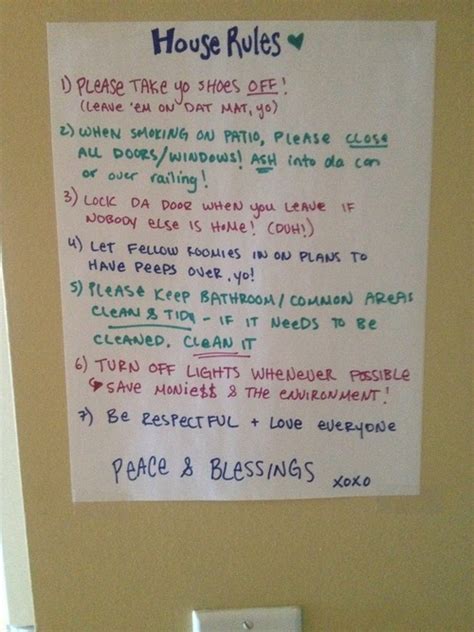 House Rules ♥
1) PLEASE TAKE YO SHOES OFF!
(LEAVE 'EM ON DAT MAT, YO)
2) WHEN SMOKING ON PATIO, PLEASE CLOSE
ALL DOORS/WINDOWS! ASH into da can
or over railing!
3) LOCK DA DOOR WHEN YOU LEAVE IF
NOBODY ELSE IS HOME! (DUH!)
4) LET FELLOW ROOMIES IN ON PLANS TO
HAVE PEEPS OVER, YO!
5) PLEASE KEEP BATHROOM/COMMON AREAS
CLEAN & TIDY - IF IT NEEDS TO BE
CLEANED, CLEAN IT
6) TURN OFF LIGHTS WHENEVER POSSIBLE
↳ SAVE MONIE$$ & THE ENVIRONMENT!
7) BE RESPECTFUL + LOVE EVERYONE
PEACE & BLESSINGS
XOXO